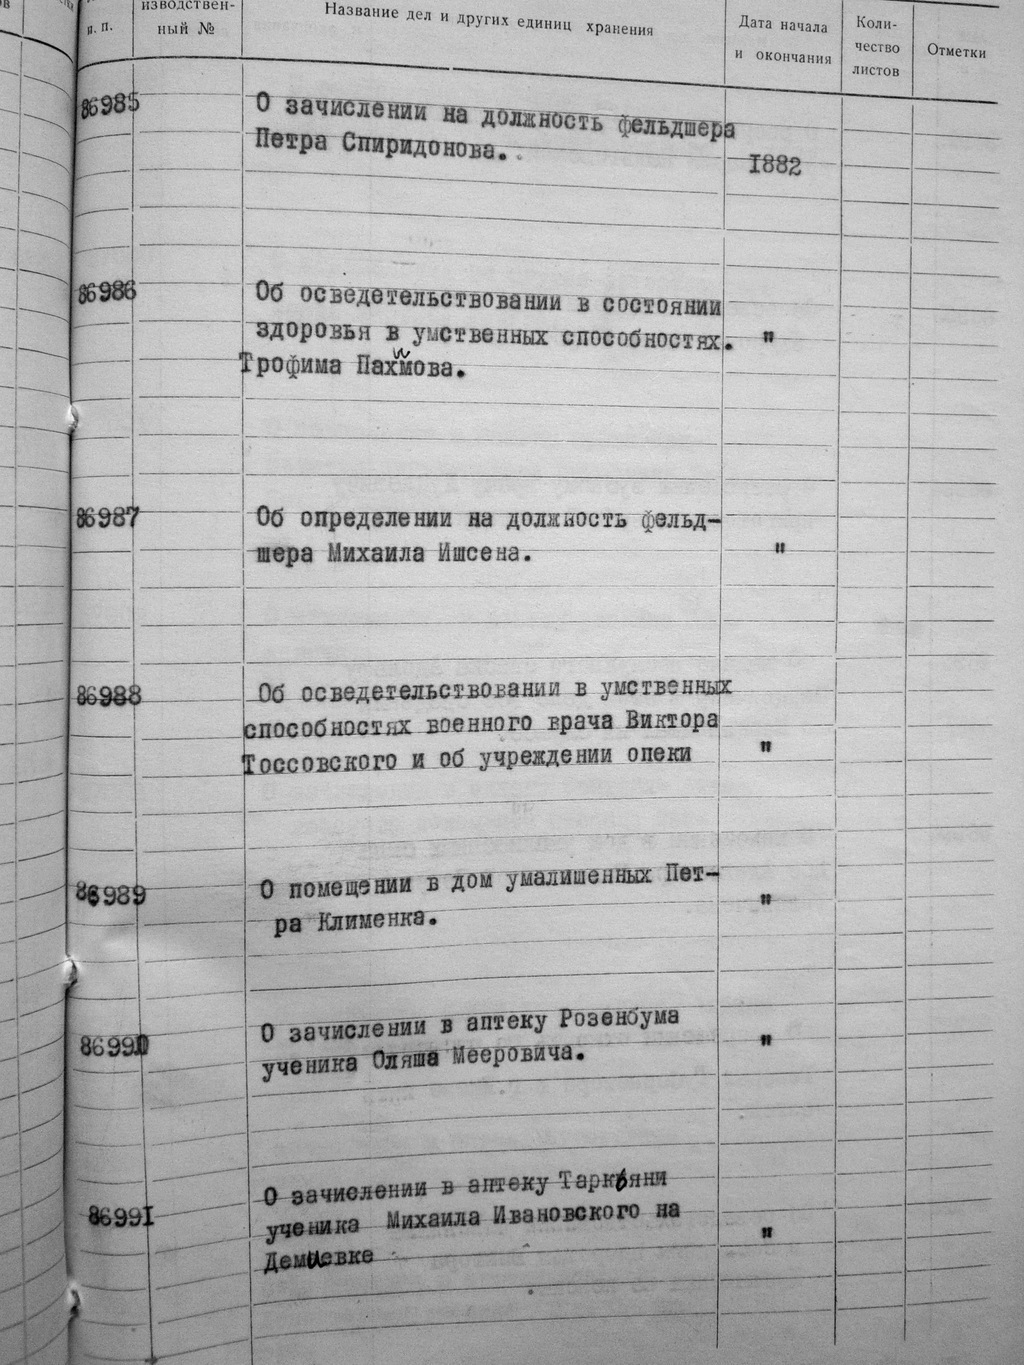 п. п.
изводствен-
ный №
Название дел и других единиц хранения
Дата начала
и окончания
Коли-
чество
листов
Отметки
86985
О зачислении на должность фельдшера
Петра Спиридонова.
1882
86986
Об осведетельствовании в состоянии
здоровья в умственных способностях.
Трофима Пахомова.
"
86987
Об определении на должность фельд-
шера Михаила Ишсена.
"
86988
Об осведетельствовании в умственных
способностях военного врача Виктора
Тоссовского и об учреждении опеки
"
86989
О помещении в дом умалишенных Пет-
ра Клименка.
"
86990
О зачислении в аптеку Розенбума
ученика Оляша Мееровича.
"
86991
О зачислении в аптеку
ученика Михаила Ивановского на
Демиевке
"